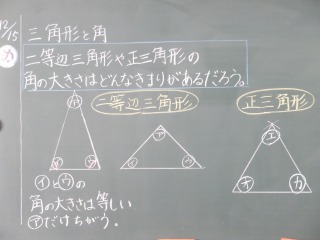 12/15
三角形と角
め
二等辺三角形や正三角形の
角の大きさはどんなきまりがあるだろう。
二等辺三角形
正三角形
ア
イ ウ
ア
イ ウ
エ
オ カ
イとウの
角の大きさは等しい
アだけちがう。